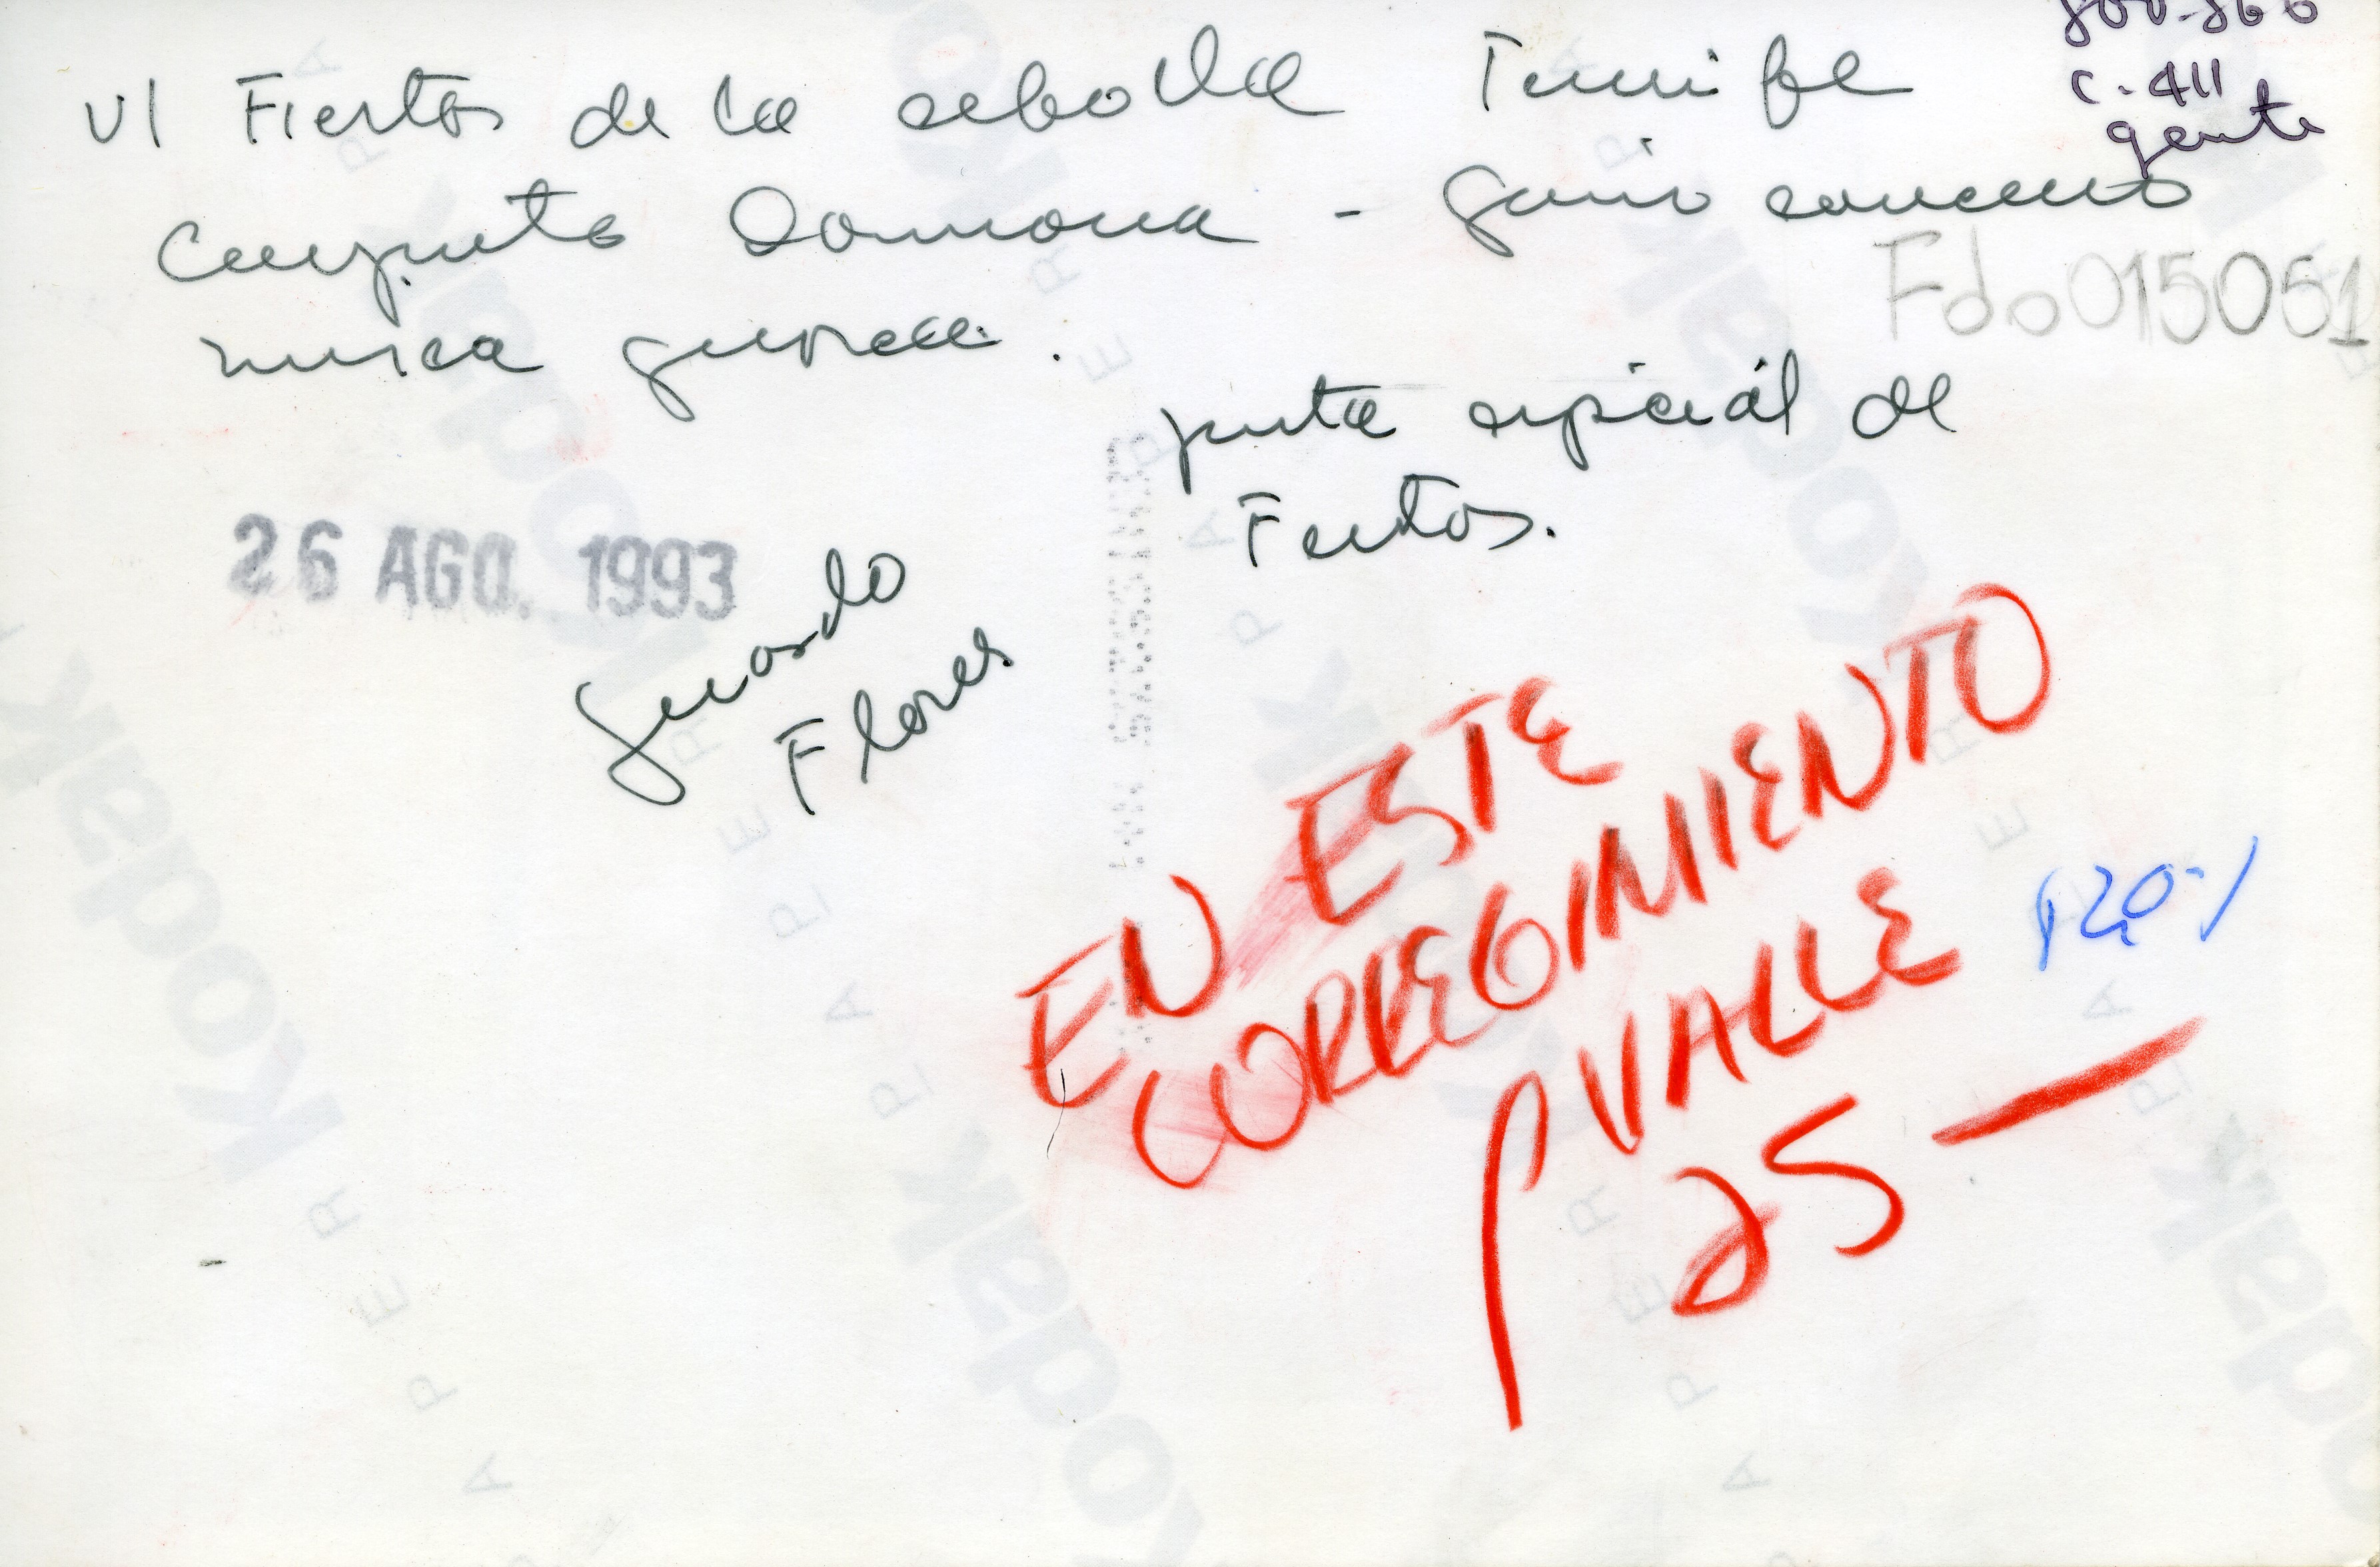 800-866
c-411
gente
VI Fiestas de la cebolla Tenerife
Conjunto Damona - Gano concurso
musica guasca.
Fdo 015051
junta especial de
Festos.
26 AGO. 1993
Gerardo
Flores
EN ESTE
CORREGIMIENTO
VALLE
25 —
Kodak
PAPER